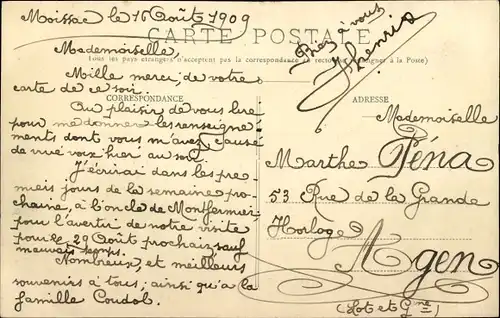 Moissac le 16 Août 1909
CARTE POSTALE
Tous les pays étrangers n'acceptent pas la correspondance au recto (se renseigner à la Poste)
Mademoiselle,
Mille merci, de votre
carte de ce soir.
CORRESPONDANCE
Au plaisir de vous lire
pour me donner les renseigne
ments dont vous m'avez causé
de vive voix hier au soir.
J'écrirai dans les pre-
miers jours de la semaine pro-
chaine, à l'oncle de Montfermier,
pour l'avertir de notre visite
pour le 29 Août prochain, sauf
mauvais temps.
Nombreux, et meilleurs
souvenirs à tous; ainsi qu'à la
famille Coudol.
Bien à vous
Henri
ADRESSE
Mademoiselle
Marthe Péna
53 Rue de la Grande
Horloge
Agen
(Lot et Gne)